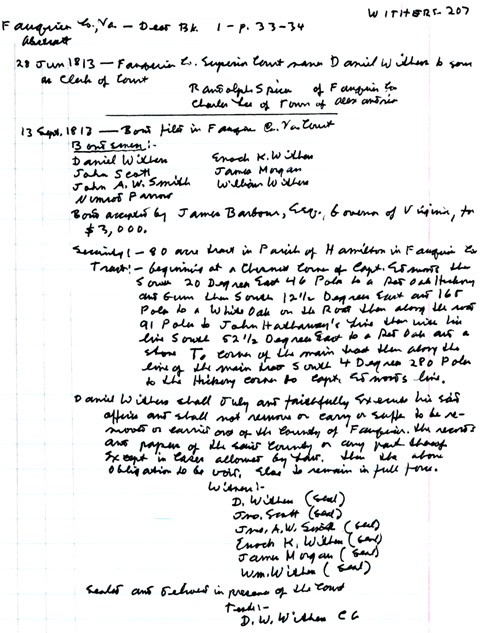 WITHERS-207
Fauquier Co., Va - Deed Bk. 1 - p. 33-34
Abstract
28 Jun 1813 - Fauquier Co. Superior Court names Daniel Withers to serve
as Clerk of Court
Randolph Spicer of Fauquier Co
Charles Lee of Town of Alexandria
13 Sept. 1813 - Bond filed in Fauquier Co. Va Court
Bondsmen:-
Daniel Withers Enoch K. Withers
John Scott James Morgan
John A. W. Smith William Withers
Nimrod Farrow
Bond accepted by James Barbour, Esq., Governor of Virginia, for
$3,000.
Security - 80 acre tract in Parish of Hamilton in Fauquier Co
Tract:- beginning at a corner of Capt. Edmonds then
South 20 Degrees East 46 Poles to a Red Oak Hickory
and Gum then South 12 1/2 Degrees East and 165
Poles to a White Oak on the Road then along the road
91 Poles to John Hathaway's line then with his
line South 52 1/2 Degrees East to a Red Oak and a
stone To corner of the main tract then along the
line of the main tract South 4 Degrees 280 Poles
to the Hickory corner to Capt. Edmonds line.
Daniel Withers shall duly and faithfully execute his said
office and shall not remove or carry or suffer to be re-
moved or carried out of the County of Fauquier the records
and papers of the said County or any part thereof
except in cases allowed by law. then the above
obligation to be void. Else to remain in full force.
Witness:-
D. Withers (seal)
Jno. Scott (seal)
Jno. A. W. Smith (seal)
Enoch K. Withers (seal)
James Morgan (seal)
Wm. Withers (seal)
Sealed and delivered in presence of the Court
Teste:-
D. W. Withers CC